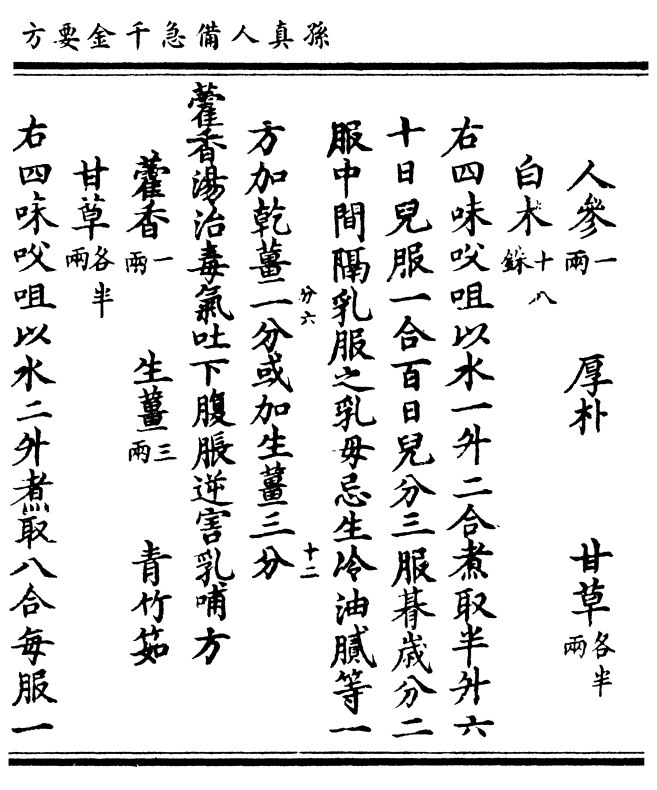 孫真人備急千金要方
人參一兩 厚朴 甘草各半兩
白朮十八銖
右四味㕮咀以水一升二合煮取半升六
十日兒服一合百日兒分三服朞歲分二
服中間隔乳服之乳母忌生冷油膩等一
分六 十二
方加乾薑二分或加生薑三分
藿香湯治毒氣吐下腹脹逆害乳哺方
藿香一兩 生薑三兩 青竹茹
甘草各半兩
右四味㕮咀以水二升煮取八合每服一